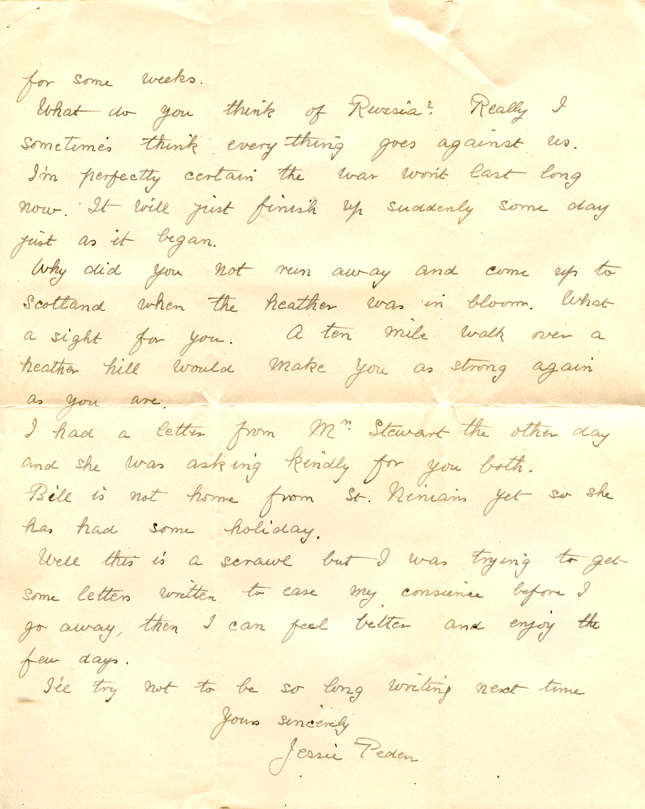 for some weeks.
What do you think of Russia? Really I
sometimes think everything goes against us.
I'm perfectly certain the war won't last long
now. It will just finish up suddenly some day
just as it began.
Why did you not run away and come up to
Scotland when the heather was in bloom. What
a sight for you. A ten mile walk over a
heather hill would make you as strong again
as you are.
I had a letter from Mrs. Stewart the other day
and she was asking kindly for you both.
Bill is not home from St. Ninians yet so she
has had some holiday.
Well this is a scrawl but I was trying to get
some letters written to ease my consience before I
go away, then I can feel better and enjoy the
few days.
I'll try not to be so long writing next time
Yours sincerely
Jessie Peden